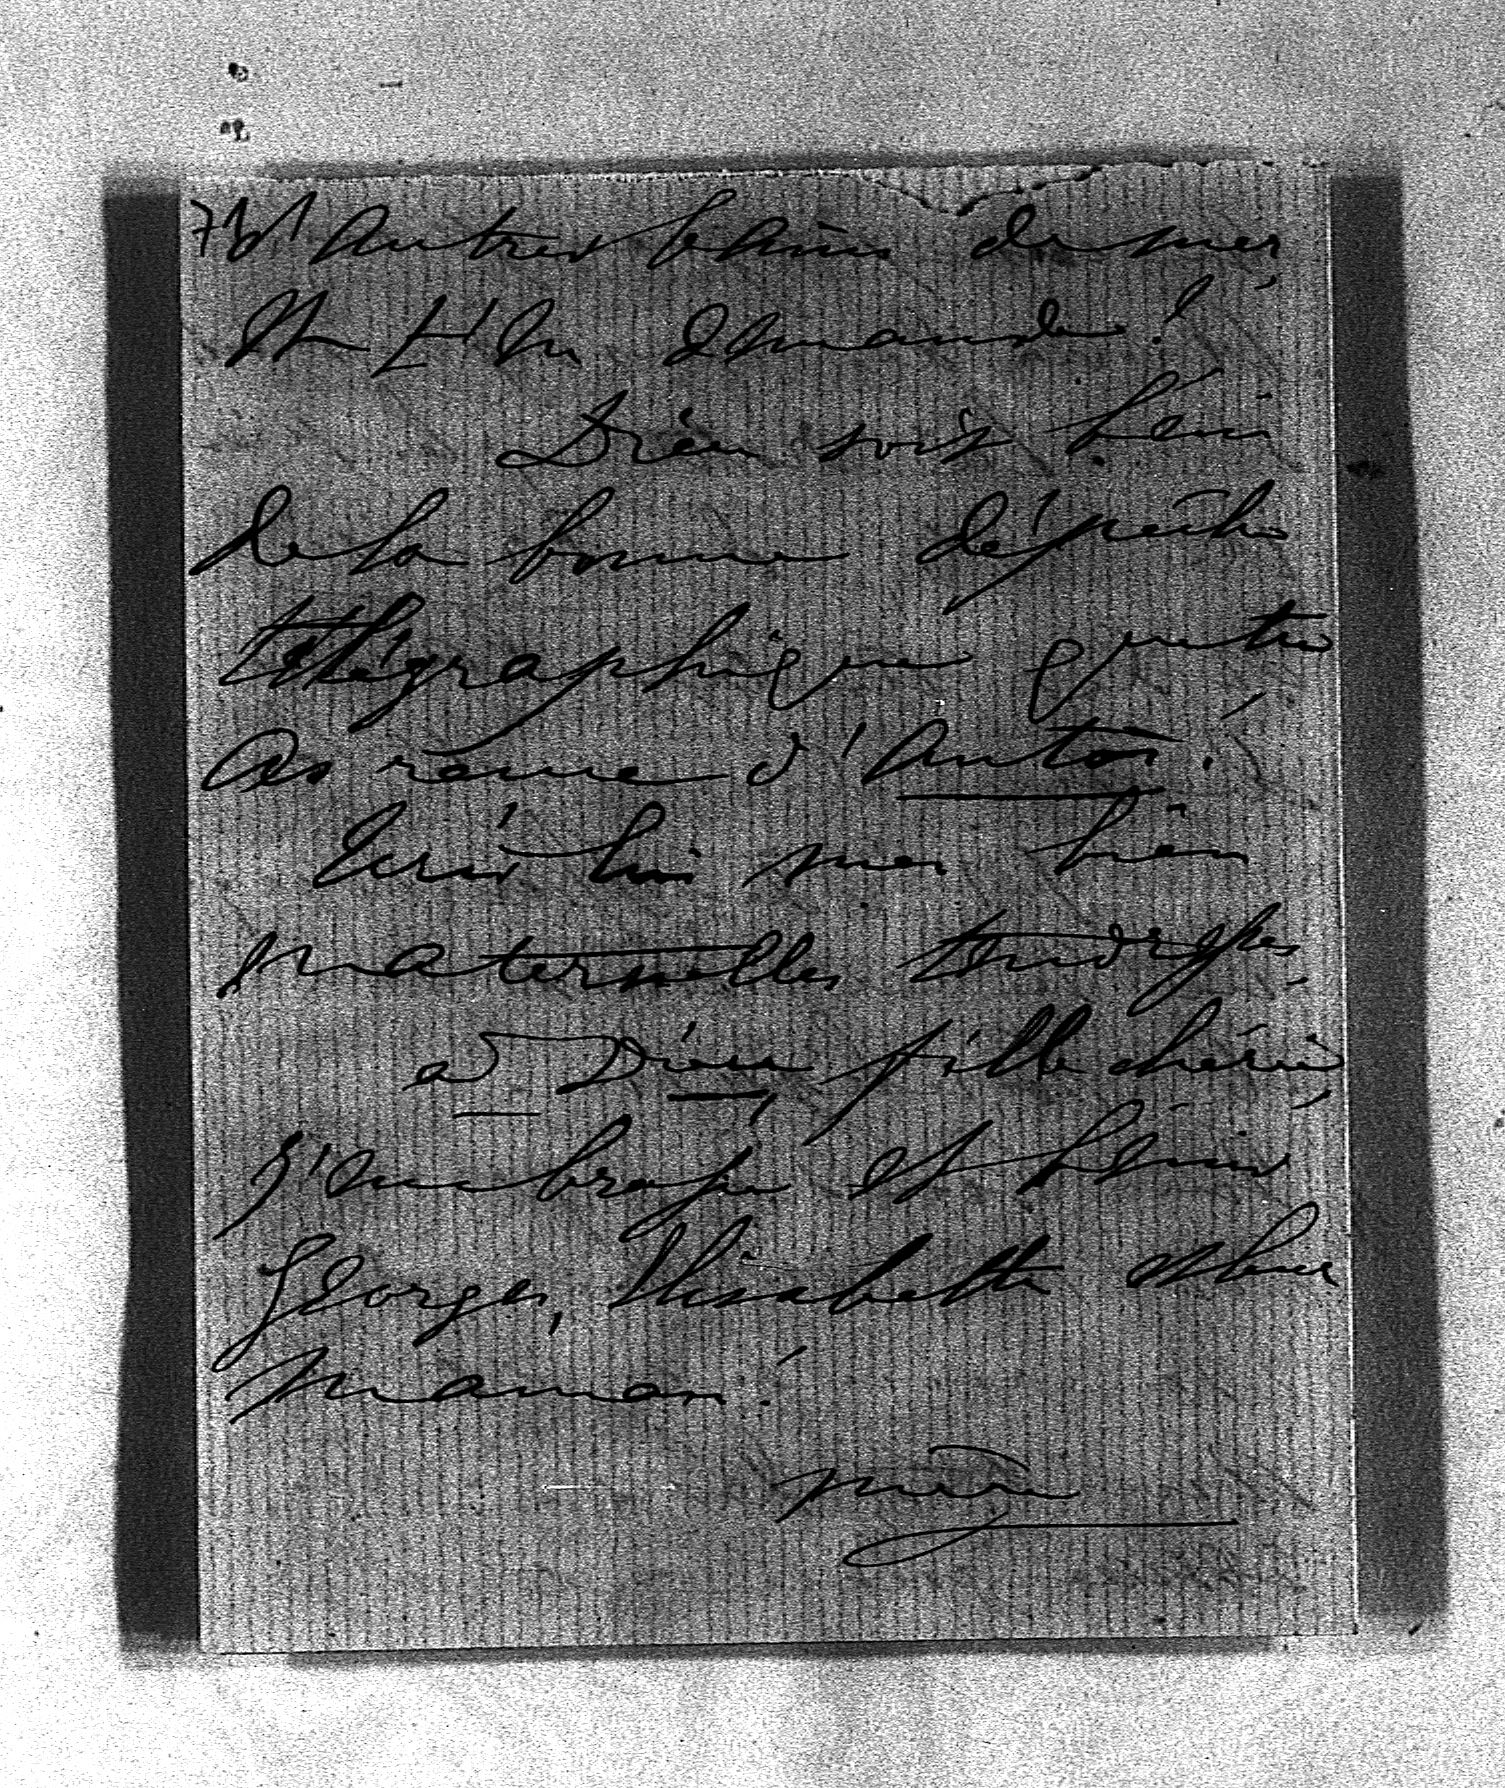 7/ d'autres besoins de mer,
Dieu soit béni
de la bonne dépêche
télégraphique que tu
as reçue d'Antoi!
lui mes bien
maternelles tendresses,
à Dieu, fille chérie,
j'embrasse et bénis
Georges, Elisabeth et leur
maman!
mère